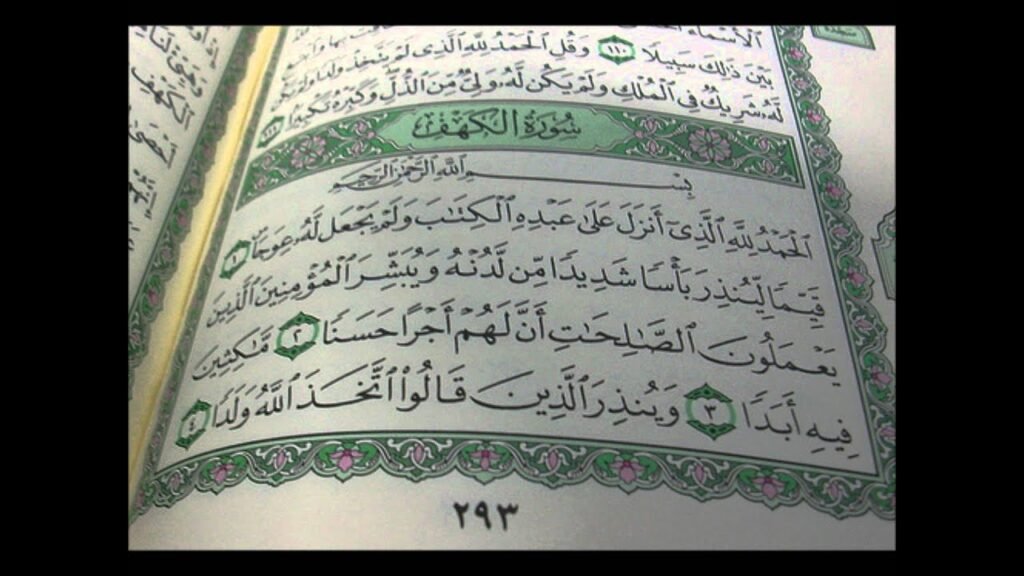 الْأَسْمَاءُ
بَيْنَ ذَٰلِكَ سَبِيلًا ١١٠ وَقُلِ الْحَمْدُ لِلَّهِ الَّذِي لَمْ يَتَّخِذْ وَلَدًا وَلَمْ يَكُن
لَّهُ شَرِيكٌ فِي الْمُلْكِ وَلَمْ يَكُن لَّهُ وَلِيٌّ مِّنَ الذُّلِّ وَكَبِّرْهُ تَكْبِيرًا ١١١
سُورَةُ الْكَهْفِ
بِسْمِ اللَّهِ الرَّحْمَٰنِ الرَّحِيمِ
الْحَمْدُ لِلَّهِ الَّذِي أَنزَلَ عَلَىٰ عَبْدِهِ الْكِتَابَ وَلَمْ يَجْعَل لَّهُ عِوَجًا ١
قَيِّمًا لِّيُنذِرَ بَأْسًا شَدِيدًا مِّن لَّدُنْهُ وَيُبَشِّرَ الْمُؤْمِنِينَ الَّذِينَ
يَعْمَلُونَ الصَّالِحَاتِ أَنَّ لَهُمْ أَجْرًا حَسَنًا ٢ مَّاكِثِينَ
فِيهِ أَبَدًا ٣ وَيُنذِرَ الَّذِينَ قَالُوا اتَّخَذَ اللَّهُ وَلَدًا ٤
٢٩٣